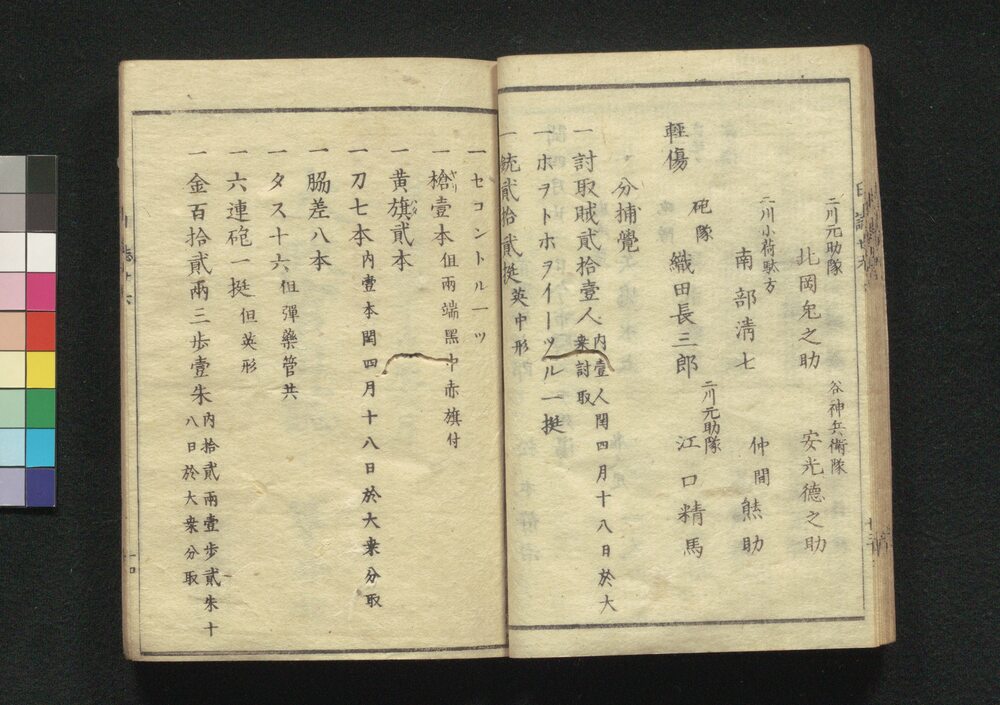 二川元助隊
北岡兎之助
谷神兵衛隊
安光德之助
二川小荷駄方
南部清七
仲間熊助
輕傷
砲隊
織田長三郎
二川元助隊
江口精馬
分捕覺
一討取賊貳拾壹人内壹人閏四月十八日於大
桒討取
一ホヲトホヲイーツル一挺
一銃貳拾貳挺英中形
一セコントル一ツ
一槍壹本但兩端黒中赤旗付
一黄旗貳本
一刀七本内壹本閏四月十八日於大桒分取
一脇差八本
一タス十六但彈藥管共
一六連砲一挺但英形
一金百拾貳兩三歩壹朱内拾貳兩壹歩貳朱十
八日於大桒分取